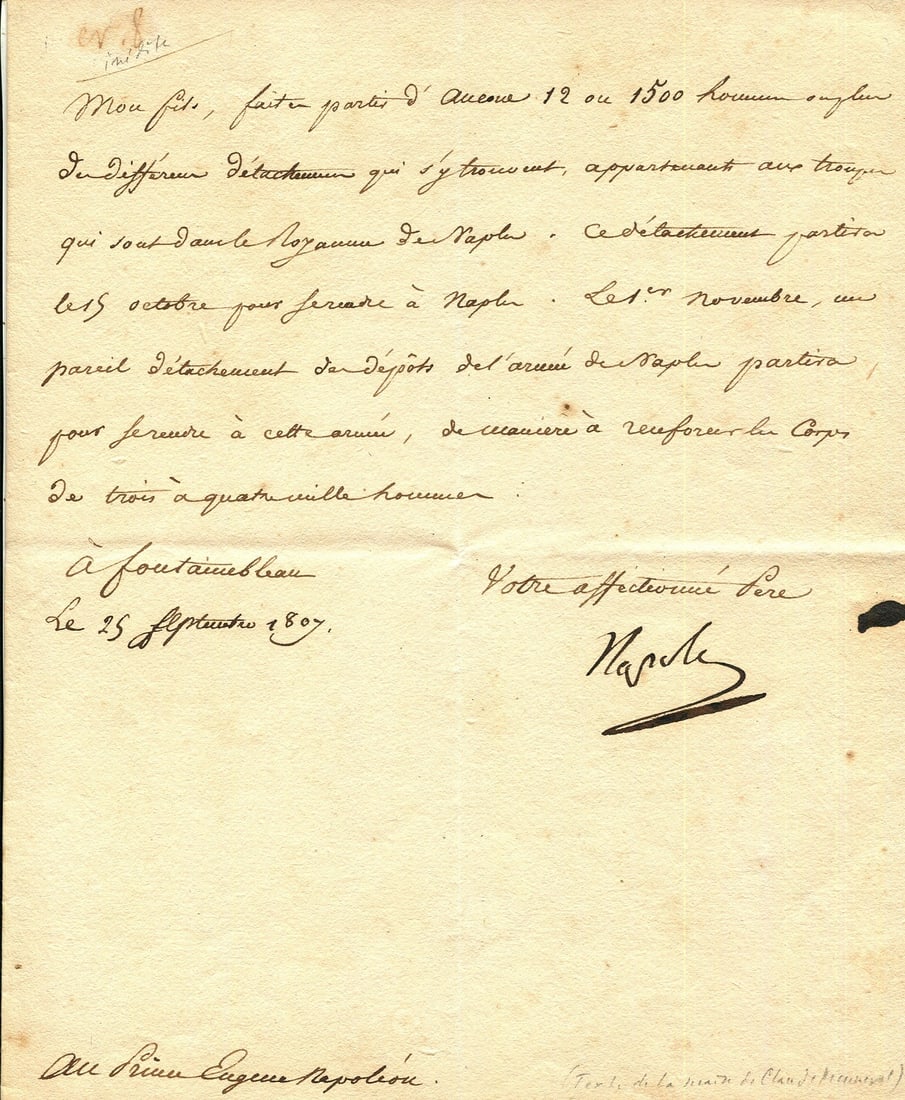 inédite
Mon fils, faites partir d'Ancone 12 ou 1500 hommes
des différens détachemens qui s'y trouvent, appartenants aux troupes
qui sont dans le Royaume de Naples. Ce détachement partira
le 15 octobre pour se rendre à Naples. Le 1.er novembre, un
pareil détachement des dépôts de l'armée de Naples partira,
pour se rendre à cette armée, de manière à renforcer les Corps
de trois à quatre mille hommes.
à fontainebleau
Le 25 septembre 1807.
Votre affectionné Pere
Napole
au Prince Eugene Napoléon.
(Texte de la main de Claude Menneval)